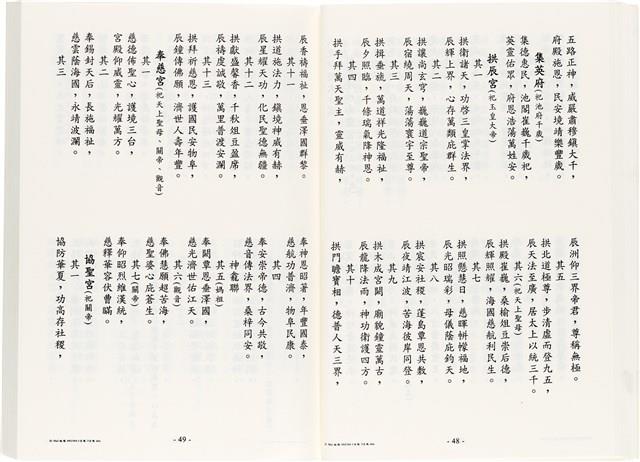 五路正神，威嚴肅穆鎮大千，
府殿施恩，民安境靖樂豐歲。
集英府(祀池府千歲)
集德惠民，池閣崔巍千歲祀，
英靈佑眾，府恩浩蕩萬姓安。
拱辰宮(祀玉皇大帝)
其一
拱衛諸天，功啓三皇掌法界，
辰輝上界，心存萬類庇群生。
其二
拱讓尚玄穹，巍巍道宗聖帝，
辰宮繞周天，蕩蕩寰宇至尊。
其三
拱揖垂旒，萬道祥光隆福祉，
辰夕照臨，千條瑞氣降神恩。
其四
拱手拜萬天聖主，靈威有赫，
辰洲仰三界帝君，尊稱無極。
其五
拱北道極尊，步清虛而登九五，
辰天法至廣，居太上以統三千。
其六(祀天上聖母)
拱殿崔巍，桑榆俎豆崇后德，
辰輝照耀，海國慈航利民生。
其七
拱照懸慧日，慈暉帡幪福地，
辰光昭瑞彩，母儀蔭庇鈞天。
其八
拱宸安社稷，蓬島覃恩共數，
辰夜靖江波，苦海彼岸同登。
其九
拱木成宮闕，廟貌鐘靈萬古，
辰龍降法雨，神功衛護四方。
其十
拱門瞻寶相，德普人天三界，
- 48 -
辰香禱福祉，恩垂澤國群黎。
其十一
拱道施法力，鎮境神威有赫，
辰星耀天功，化民聖德無疆。
其十二
拱獻盛馨香，千秋俎豆盈席，
辰禱虔誠敬，萬里普渡安瀾。
其十三
拱拜祈慈恩，護國民安物阜，
辰鐘傳佛願，濟世人壽年豐。
奉慈宮(祀天上聖母、關帝、觀音)
其一
慈德佈聖心，護境三台，
宮殿仰威靈，光耀萬方。
其二
奉錫封天后，長施福祉，
慈雲蔭海國，永靖波瀾。
其三
奉神恩昭著，年豐國泰，
慈航功普濟，物阜民康。
其四
奉安崇帝德，古今共敬，
慈音傳法界，桑梓同安。
神龕聯
其五(媽祖)
奉闕覃恩垂澤國，
慈光濟世佑江天。
其六(觀音)
奉佛慧願超苦海，
慈聖婆心庇蒼生。
其七(關帝)
奉仰昭烈維漢統，
慈釋華容伏曹瞞。
協聖宮(祀關帝)
其一
協防華夏，功高存社稷，
- 49 -